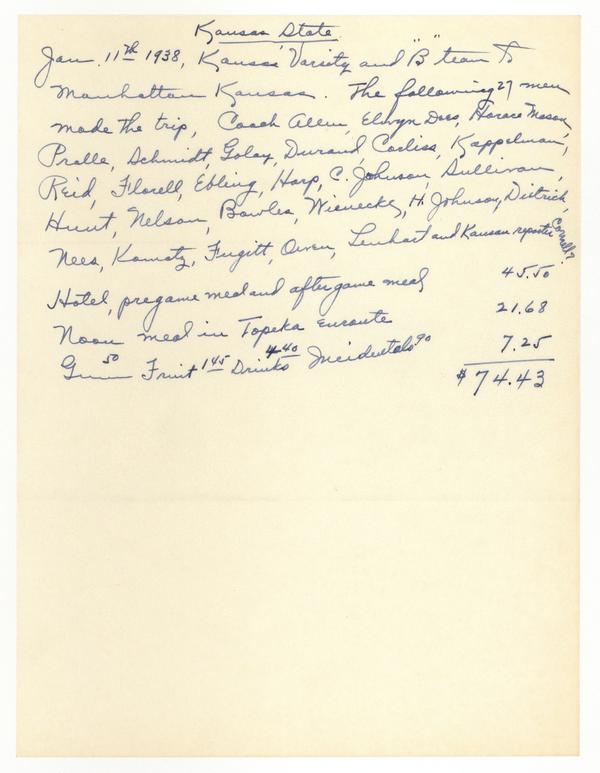 Kansas State
Jan. 11th 1938, Kansas Varsity and "B" team to
Manhattan Kansas. The following 27 men
made the trip, Coach Allen, Elwyn Dees, Horace Mason,
Pralle, Schmidt, Golay, Durand, Corliss, Kappelman,
Reid, Florell, Ebling, Harp, C. Johnson, Sullivan,
Hunt, Nelson, Bowles, Wienecke, H. Johnson, Dietrich,
Nees, Kamatz, Fugitt, Owen, Lenhart and Kansan reporter
Hotel, pregame meal and after game meal 45.50
Noon meal in Topeka Enroute 21.68
Gum 50 Fruit 1.45 Drinks 4.40 Incidentals 90 7.25
$74.43